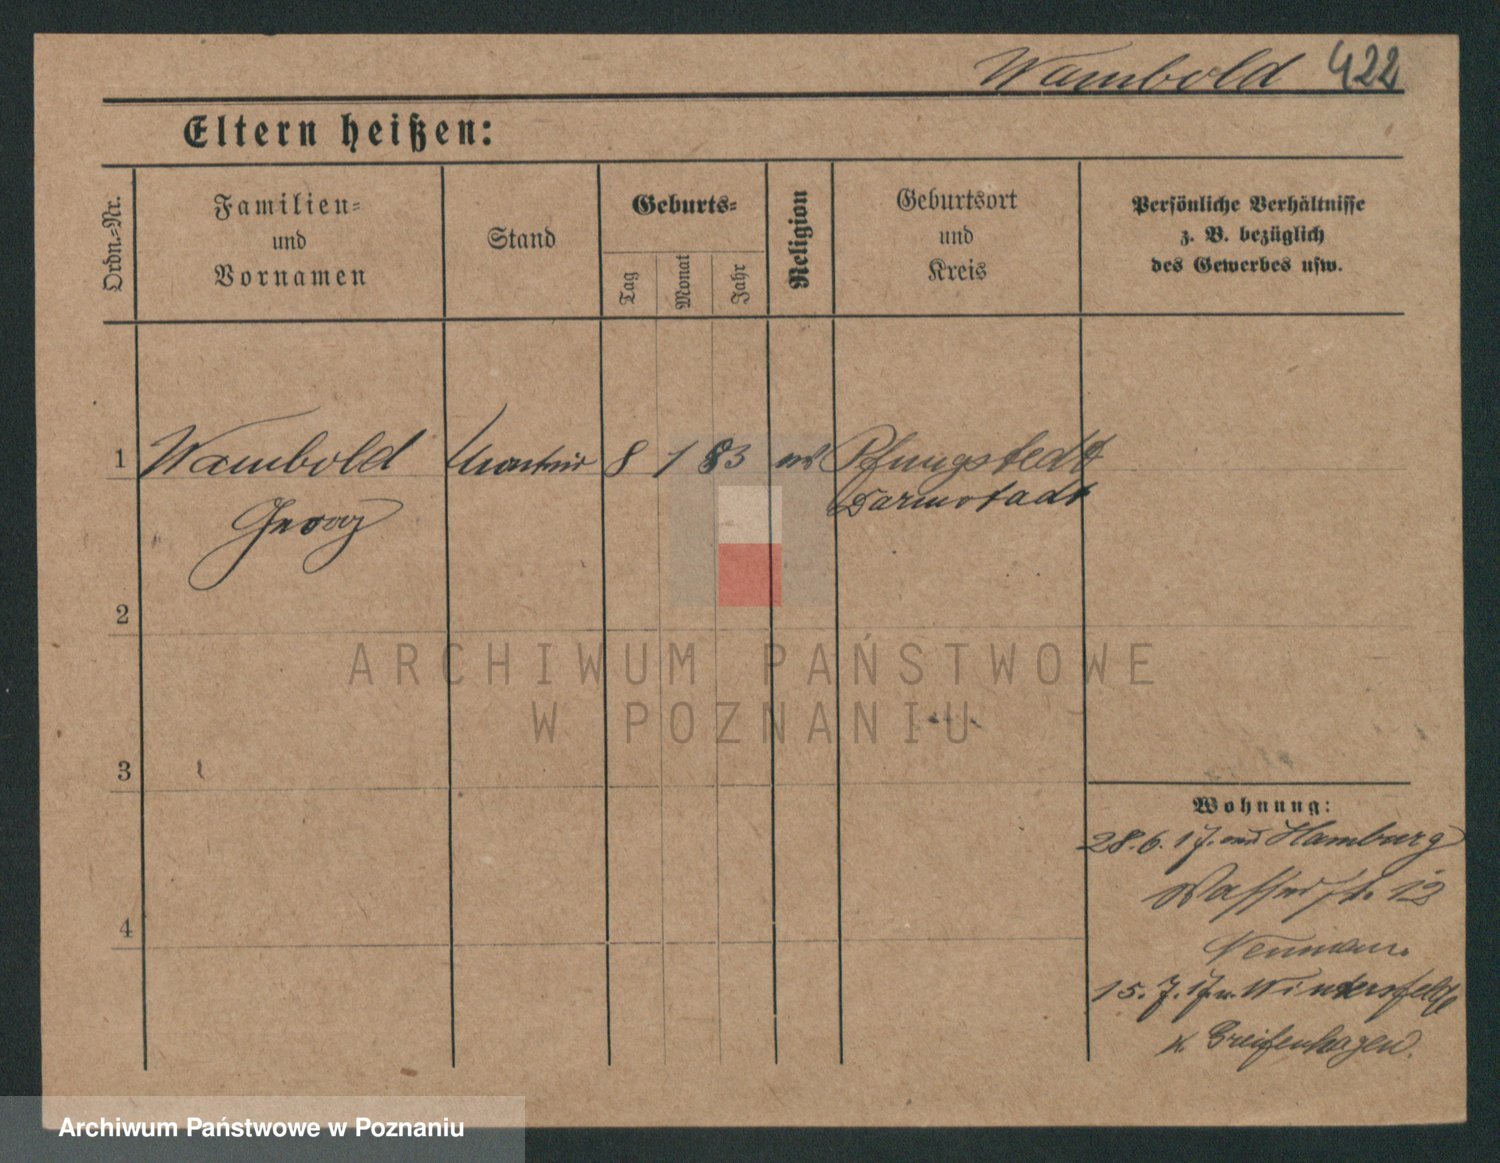 Wambold 422
Eltern heißen:
Ordn.=Nr.
Familien=
und
Vornamen
Stand
Geburts=
Tag
Monat
Jahr
Religion
Geburtsort
und
Kreis
Persönliche Verhältnisse
z. B. bezüglich
des Gewerbes usw.
1 Wambold 8 1 83 Pfungstedt
Georg Darmstadt
2
3
4
Wohnung:
28.6.17. Hamburg
Wasserstr. 12
Neumann.
15.7.17. n. Wintersfelde
K. Greifenhagen.
ARCHIWUM PAŃSTWOWE
W POZNANIU
Archiwum Państwowe w Poznaniu